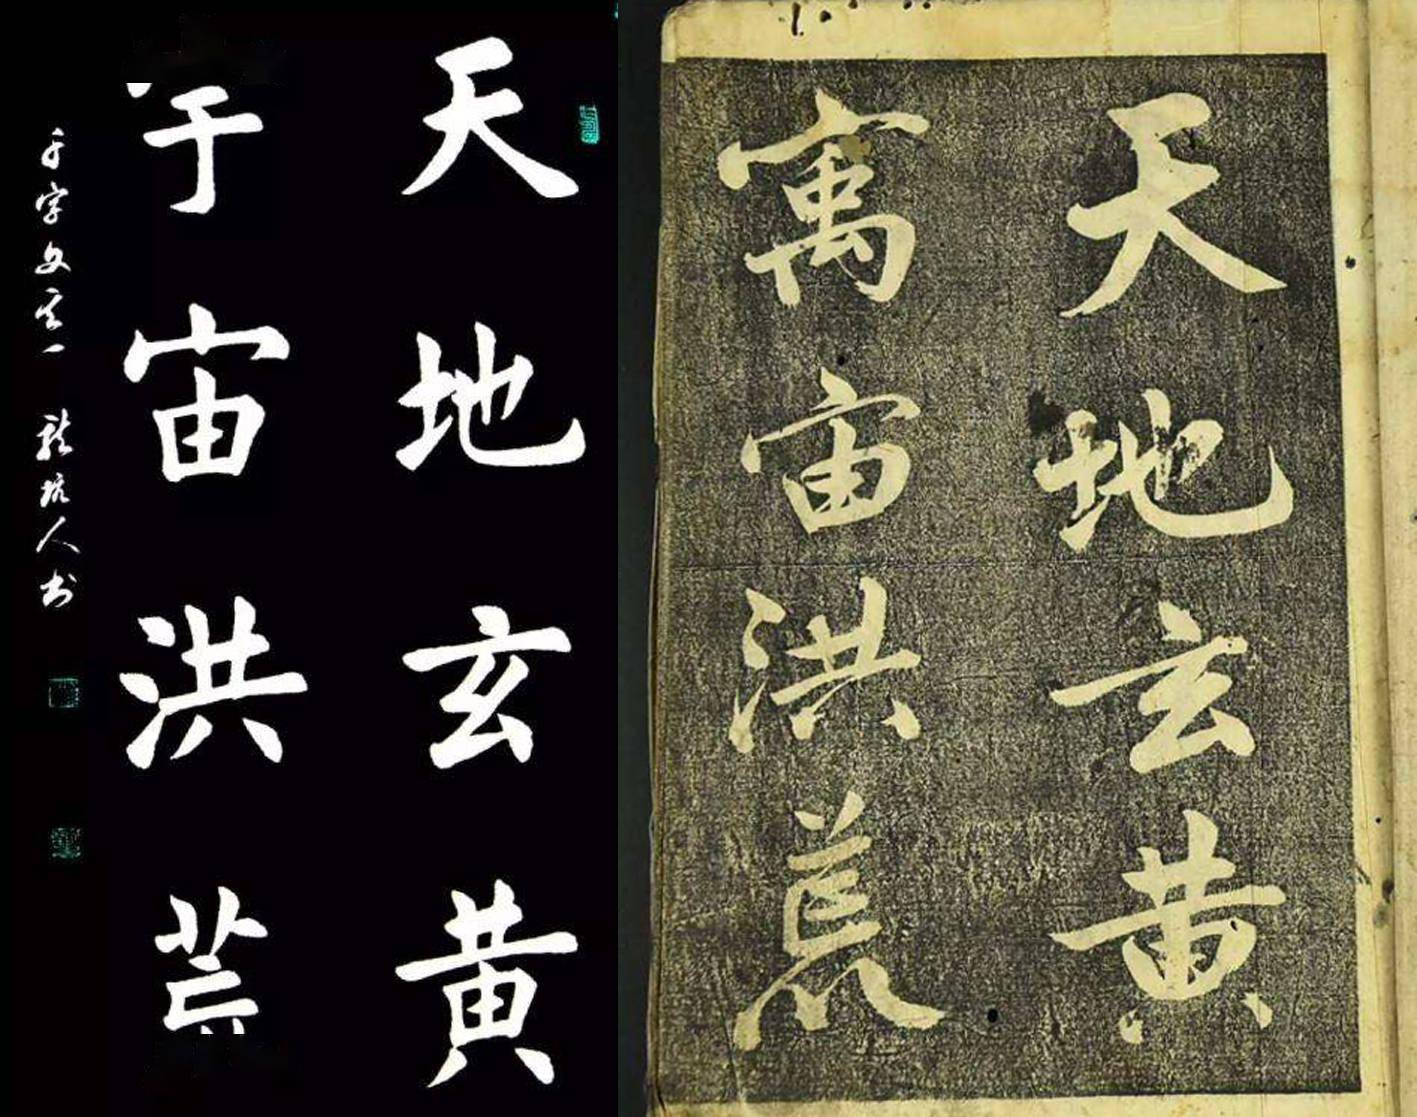 天地玄黄
于宙洪
千字文之一 人书
天地玄黄
寓宙洪荒